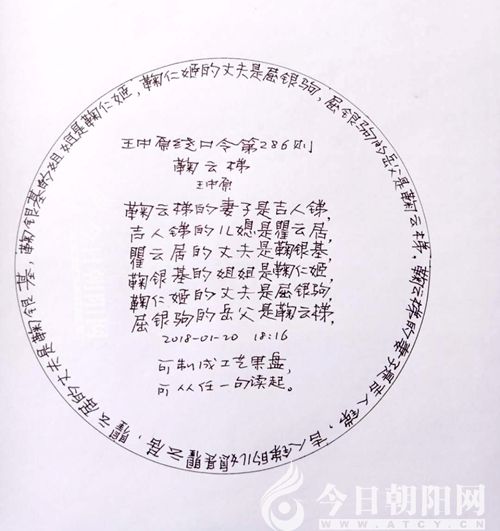 王中原绕口令第286则
鞠云梯
王中原
鞠云梯的妻子是吉人锑,
吉人锑的儿媳是瞿云居,
瞿云居的丈夫是鞠银基,
鞠银基的姐姐是鞠仁姬,
鞠仁姬的丈夫是屈银驹,
屈银驹的岳父是鞠云梯,
2018-01-20 18:16
可制成工艺果盘,
可从任一句读起。
鞠云梯的妻子是吉人锑,吉人锑的儿媳是瞿云居,瞿云居的丈夫是鞠银基,鞠银基的姐姐是鞠仁姬,鞠仁姬的丈夫是屈银驹,屈银驹的岳父是鞠云梯,
今日朝阳网
WWW.ATCY.CN